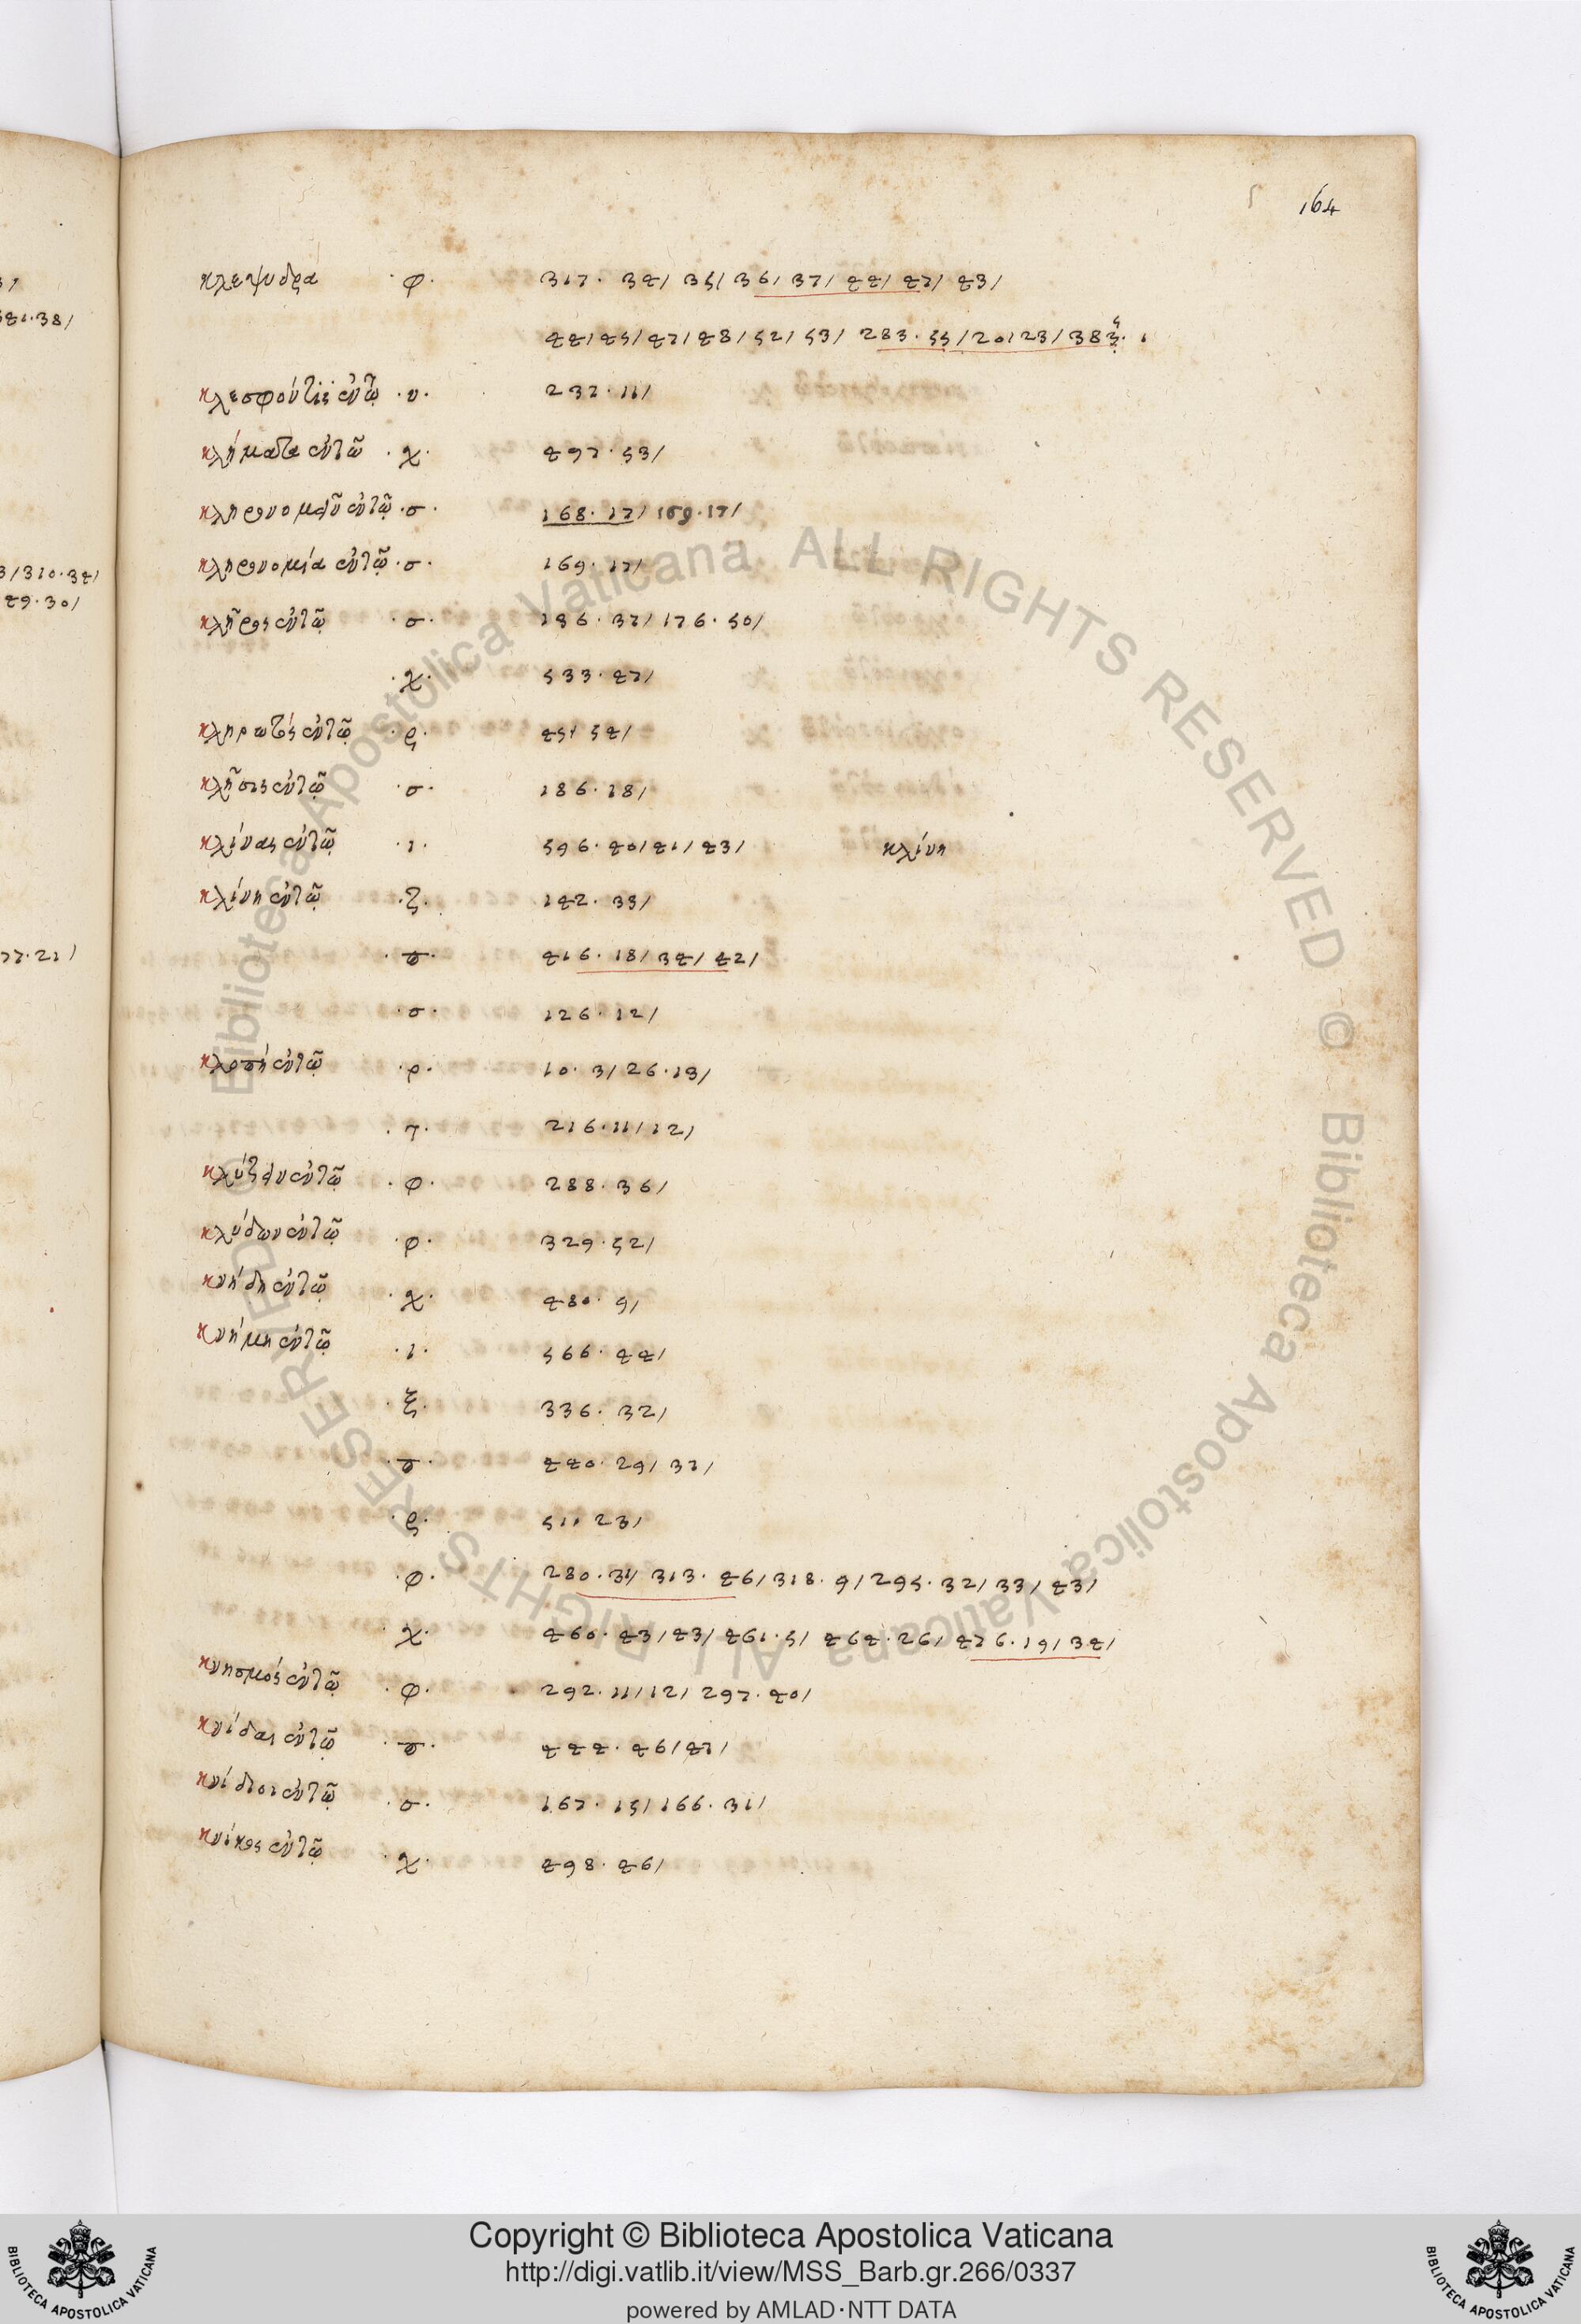 164
κλεψυδρα ·φ· 317· 34/ 35/ 36/ 37/ 44/ 47/ 43/
44/ 45/ 47/ 48/ 52/ 53/ 283· 55/ 20/ 23/ 38
·υ· 237·11/
κλήματα ἐν τῷ ·χ· 497·53/
κληρονομεῖν ἐν τῷ ·σ· 168·17/ 169·17/
κληρονομία ἐν τῷ ·σ· 169·17/
κλῆρος ἐν τῷ ·σ· 136·37/ 176·50/
·χ· 533·47/
κληρωτὶς ἐν τῷ ·ρ· 45· 54/
κλῆσις ἐν τῷ ·σ· 186·18/
κλίνας ἐν τῷ ·ι· 596·40/ 41/ 43/ κλίνη
κλίνη ἐν τῷ ·ζ· 142·33/
·π· 416·18/ 34/ 42/
·σ· 126·12/
κλοπὴ ἐν τῷ ·ρ· 10·3/ 26·13/
·τ· 216·11/ 12/
κλύζειν ἐν τῷ ·φ· 288·36/
κλύδων ἐν τῷ ·φ· 329·52/
κνήδη ἐν τῷ ·χ· 480·9/
κνήμη ἐν τῷ ·ι· 566·44/
·ξ· 336·32/
·π· 440·29/ 37/
·ρ· 511 23/
·φ· 280·31/ 313·46/ 318·9/ 295·32/ 33/ 43/
·χ· 460·43/ 43/ 461·5/ 464·26/ 476·19/ 34/
κνησμός ἐν τῷ ·φ· 292·11/ 12/ 297·40/
κνίδας ἐν τῷ ·π· 444·46/ 47/
κνίδιοι ἐν τῷ ·σ· 167·15/ 166·31/
κνίκος ἐν τῷ ·χ· 498·46/
37
341·38/
3/ 310·34/
49·30/
77·21/
Biblioteca Apostolica Vaticana ALL RIGHTS RESERVED ©
Biblioteca Apostolica Vaticana ALL RIGHTS RESERVED ©
BIBLIOTECA APOSTOLICA VATICANA
Copyright © Biblioteca Apostolica Vaticana
http://digi.vatlib.it/view/MSS_Barb.gr.266/0337
powered by AMLAD·NTT DATA
BIBLIOTECA APOSTOLICA VATICANA